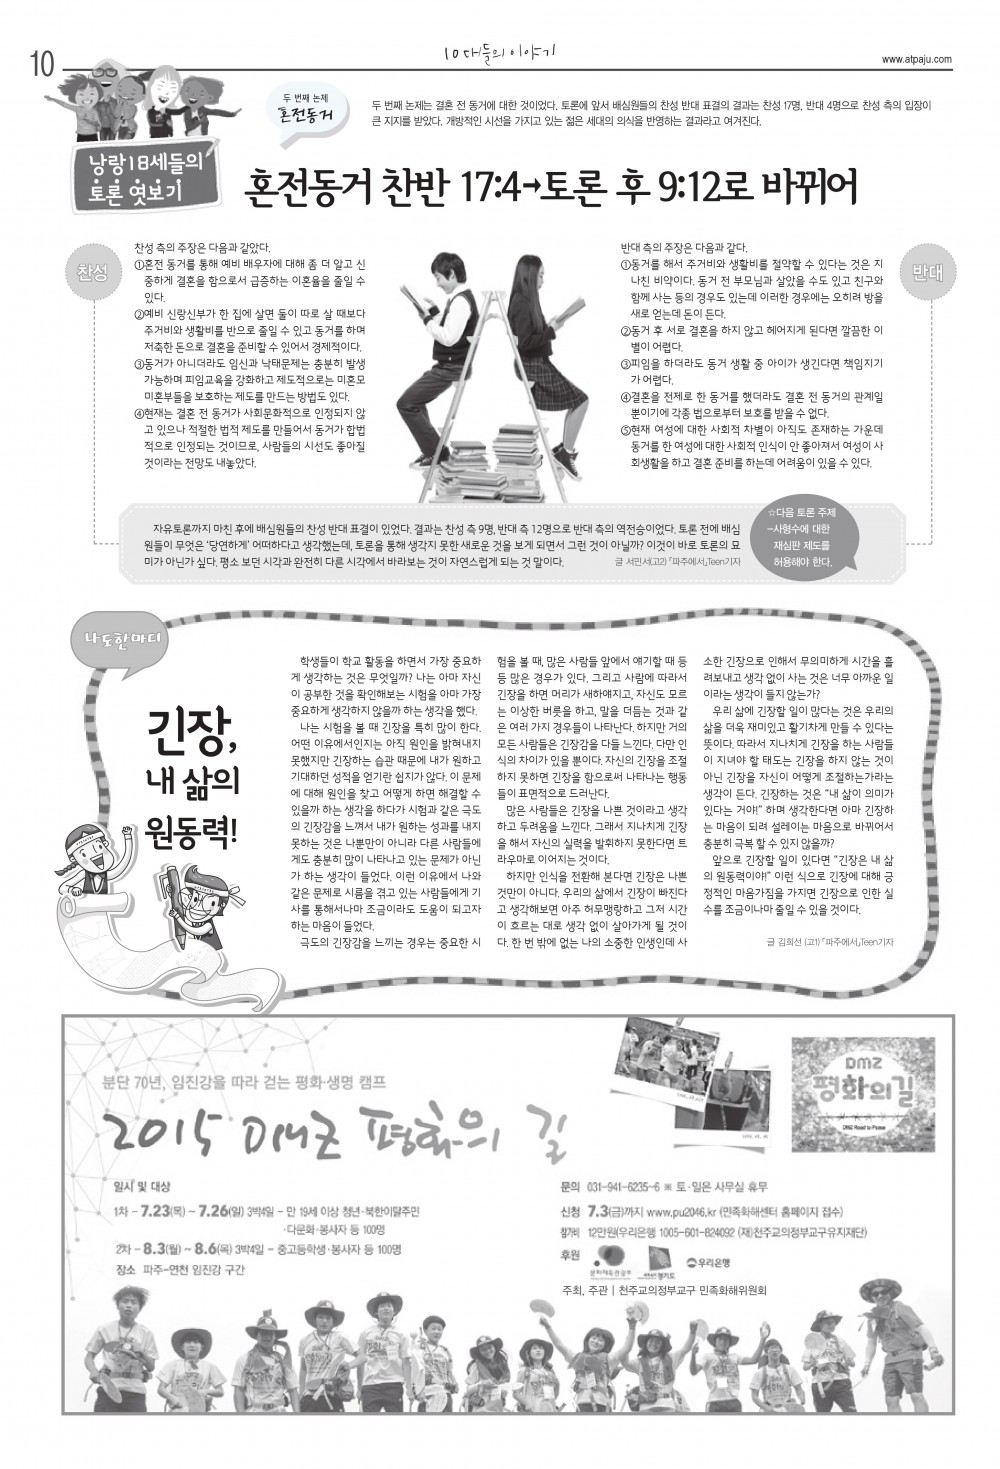 10
10대들의 이야기
www.atpaju.com
낭랑18세들의
토론 엿보기
두 번째 논제
혼전동거
두 번째 논제는 결혼 전 동거에 대한 것이었다. 토론에 앞서 배심원들의 찬성 반대 표결의 결과는 찬성 17명, 반대 4명으로 찬성 측의 입장이
큰 지지를 받았다. 개방적인 시선을 가지고 있는 젊은 세대의 의식을 반영하는 결과라고 여겨진다.
혼전동거 찬반 17:4→토론 후 9:12로 바뀌어
찬성
찬성 측의 주장은 다음과 같았다.
①혼전 동거를 통해 예비 배우자에 대해 좀 더 알고 신
중하게 결혼을 함으로서 급증하는 이혼율을 줄일 수
있다.
②예비 신랑신부가 한 집에 살면 둘이 따로 살 때보다
주거비와 생활비를 반으로 줄일 수 있고 동거를 하며
저축한 돈으로 결혼을 준비할 수 있어서 경제적이다.
③동거가 아니더라도 임신과 낙태문제는 충분히 발생
가능하며 피임교육을 강화하고 제도적으로는 미혼모
미혼부들을 보호하는 제도를 만드는 방법도 있다.
④현재는 결혼 전 동거가 사회문화적으로 인정되지 않
고 있으나 적절한 법적 제도를 만들어서 동거가 합법
적으로 인정되는 것이므로, 사람들의 시선도 좋아질
것이라는 전망도 내놓았다.
반대
반대 측의 주장은 다음과 같다.
①동거를 해서 주거비와 생활비를 절약할 수 있다는 것은 지
나친 비약이다. 동거 전 부모님과 살았을 수도 있고 친구와
함께 사는 등의 경우도 있는데 이러한 경우에는 오히려 방을
새로 얻는데 돈이 든다.
②동거 후 서로 결혼을 하지 않고 헤어지게 된다면 깔끔한 이
별이 어렵다.
③피임을 하더라도 동거 생활 중 아이가 생긴다면 책임지기
가 어렵다.
④결혼을 전제로 한 동거를 했더라도 결혼 전 동거의 관계일
뿐이기에 각종 법으로부터 보호를 받을 수 없다.
⑤현재 여성에 대한 사회적 차별이 아직도 존재하는 가운데
동거를 한 여성에 대한 사회적 인식이 안 좋아져서 여성이 사
회생활을 하고 결혼 준비를 하는데 어려움이 있을 수 있다.
자유토론까지 마친 후에 배심원들의 찬성 반대 표결이 있었다. 결과는 찬성 측 9명, 반대 측 12명으로 반대 측의 역전승이었다. 토론 전에 배심
원들이 무엇은 ‘당연하게’ 어떠하다고 생각했는데, 토론을 통해 생각지 못한 새로운 것을 보게 되면서 그런 것이 아닐까? 이것이 바로 토론의 묘
미가 아닌가 싶다. 평소 보던 시각과 완전히 다른 시각에서 바라보는 것이 자연스럽게 되는 것 말이다.
글 서민서(고2) 「파주에서」Teen기자
☆다음 토론 주제
-사형수에 대한
재심판 제도를
허용해야 한다.
나도한마디
긴장,
내 삶의
원동력!
학생들이 학교 활동을 하면서 가장 중요하
게 생각하는 것은 무엇일까? 나는 아마 자신
이 공부한 것을 확인해보는 시험을 아마 가장
중요하게 생각하지 않을까 하는 생각을 했다.
나는 시험을 볼 때 긴장을 특히 많이 한다.
어떤 이유에서인지는 아직 원인을 밝혀내지
못했지만 긴장하는 습관 때문에 내가 원하고
기대하던 성적을 얻기란 쉽지가 않다. 이 문제
에 대해 원인을 찾고 어떻게 하면 해결할 수
있을까 하는 생각을 하다가 시험과 같은 극도
의 긴장감을 느껴서 내가 원하는 성과를 내지
못하는 것은 나뿐만이 아니라 다른 사람들에
게도 충분히 많이 나타나고 있는 문제가 아닌
가 하는 생각이 들었다. 이런 이유에서 나와
같은 문제로 시름을 겪고 있는 사람들에게 기
사를 통해서나마 조금이라도 도움이 되고자
하는 마음이 들었다.
극도의 긴장감을 느끼는 경우는 중요한 시
험을 볼 때, 많은 사람들 앞에서 얘기할 때 등
등 많은 경우가 있다. 그리고 사람에 따라서
긴장을 하면 머리가 새하얘지고, 자신도 모르
는 이상한 버릇을 하고, 말을 더듬는 것과 같
은 여러 가지 경우들이 나타난다. 하지만 거의
모든 사람들은 긴장감을 다들 느낀다. 다만 인
식의 차이가 있을 뿐이다. 자신의 긴장을 조절
하지 못하면 긴장을 함으로써 나타나는 행동
들이 표면적으로 드러난다.
많은 사람들은 긴장을 나쁜 것이라고 생각
하고 두려움을 느낀다. 그래서 지나치게 긴장
을 해서 자신의 실력을 발휘하지 못한다면 트
라우마로 이어지는 것이다.
하지만 인식을 전환해 본다면 긴장은 나쁜
것만이 아니다. 우리의 삶에서 긴장이 빠진다
고 생각해보면 아주 허무맹랑하고 그저 시간
이 흐르는 대로 생각 없이 살아가게 될 것이
다. 한 번 밖에 없는 나의 소중한 인생인데 사
소한 긴장으로 인해서 무의미하게 시간을 흘
려보내고 생각 없이 사는 것은 너무 아까운 일
이라는 생각이 들지 않는가?
우리 삶에 긴장할 일이 많다는 것은 우리의
삶을 더욱 재미있고 활기차게 만들 수 있다는
뜻이다. 따라서 지나치게 긴장을 하는 사람들
이 지녀야 할 태도는 긴장을 하지 않는 것이
아닌 긴장을 자신이 어떻게 조절하는가라는
생각이 든다. 긴장하는 것은 “내 삶이 의미가
있다는 거야!” 하며 생각한다면 아마 긴장하
는 마음이 되려 설레이는 마음으로 바뀌어서
충분히 극복 할 수 있지 않을까?
앞으로 긴장할 일이 있다면 “긴장은 내 삶
의 원동력이야!” 이런 식으로 긴장에 대해 긍
정적인 마음가짐을 가지면 긴장으로 인한 실
수를 조금이나마 줄일 수 있을 것이다.
글 김희선 (고1) 「파주에서」Teen기자
분단 70년, 임진강을 따라 걷는 평화·생명 캠프
2015 DMZ 평화의 길
DMZ
평화의길
DMZ Road to Peace
일시 및 대상
1차 - 7.23(목) ~ 7.26(일) 3박4일 - 만 19세 이상 청년·북한이탈주민
·다문화·봉사자 등 100명
2차 - 8.3(월) ~ 8.6(목) 3박4일 - 중고등학생·봉사자 등 100명
장소 파주-연천 임진강 구간
문의 031-941-6235~6 ※ 토·일은 사무실 휴무
신청 7.3(금)까지 www.pu2046.kr (민족화해센터 홈페이지 접수)
참가비 12만원(우리은행 1005-601-824092 (재)천주교의정부교구유지재단)
후원 문화체육관광부 경기도 우리은행
주최, 주관 | 천주교의정부교구 민족화해위원회